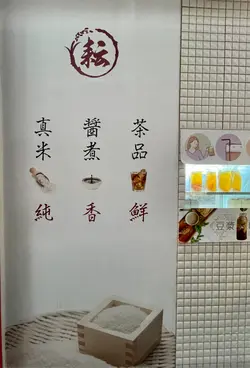 耘
茶品
鮮
醬煮
香
真米
純
豆漿